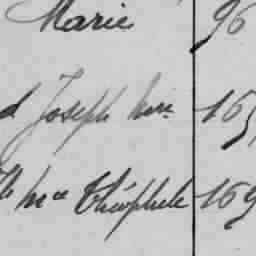 Marie 96
d Joseph Mie 165
lle Mce Théophile 169